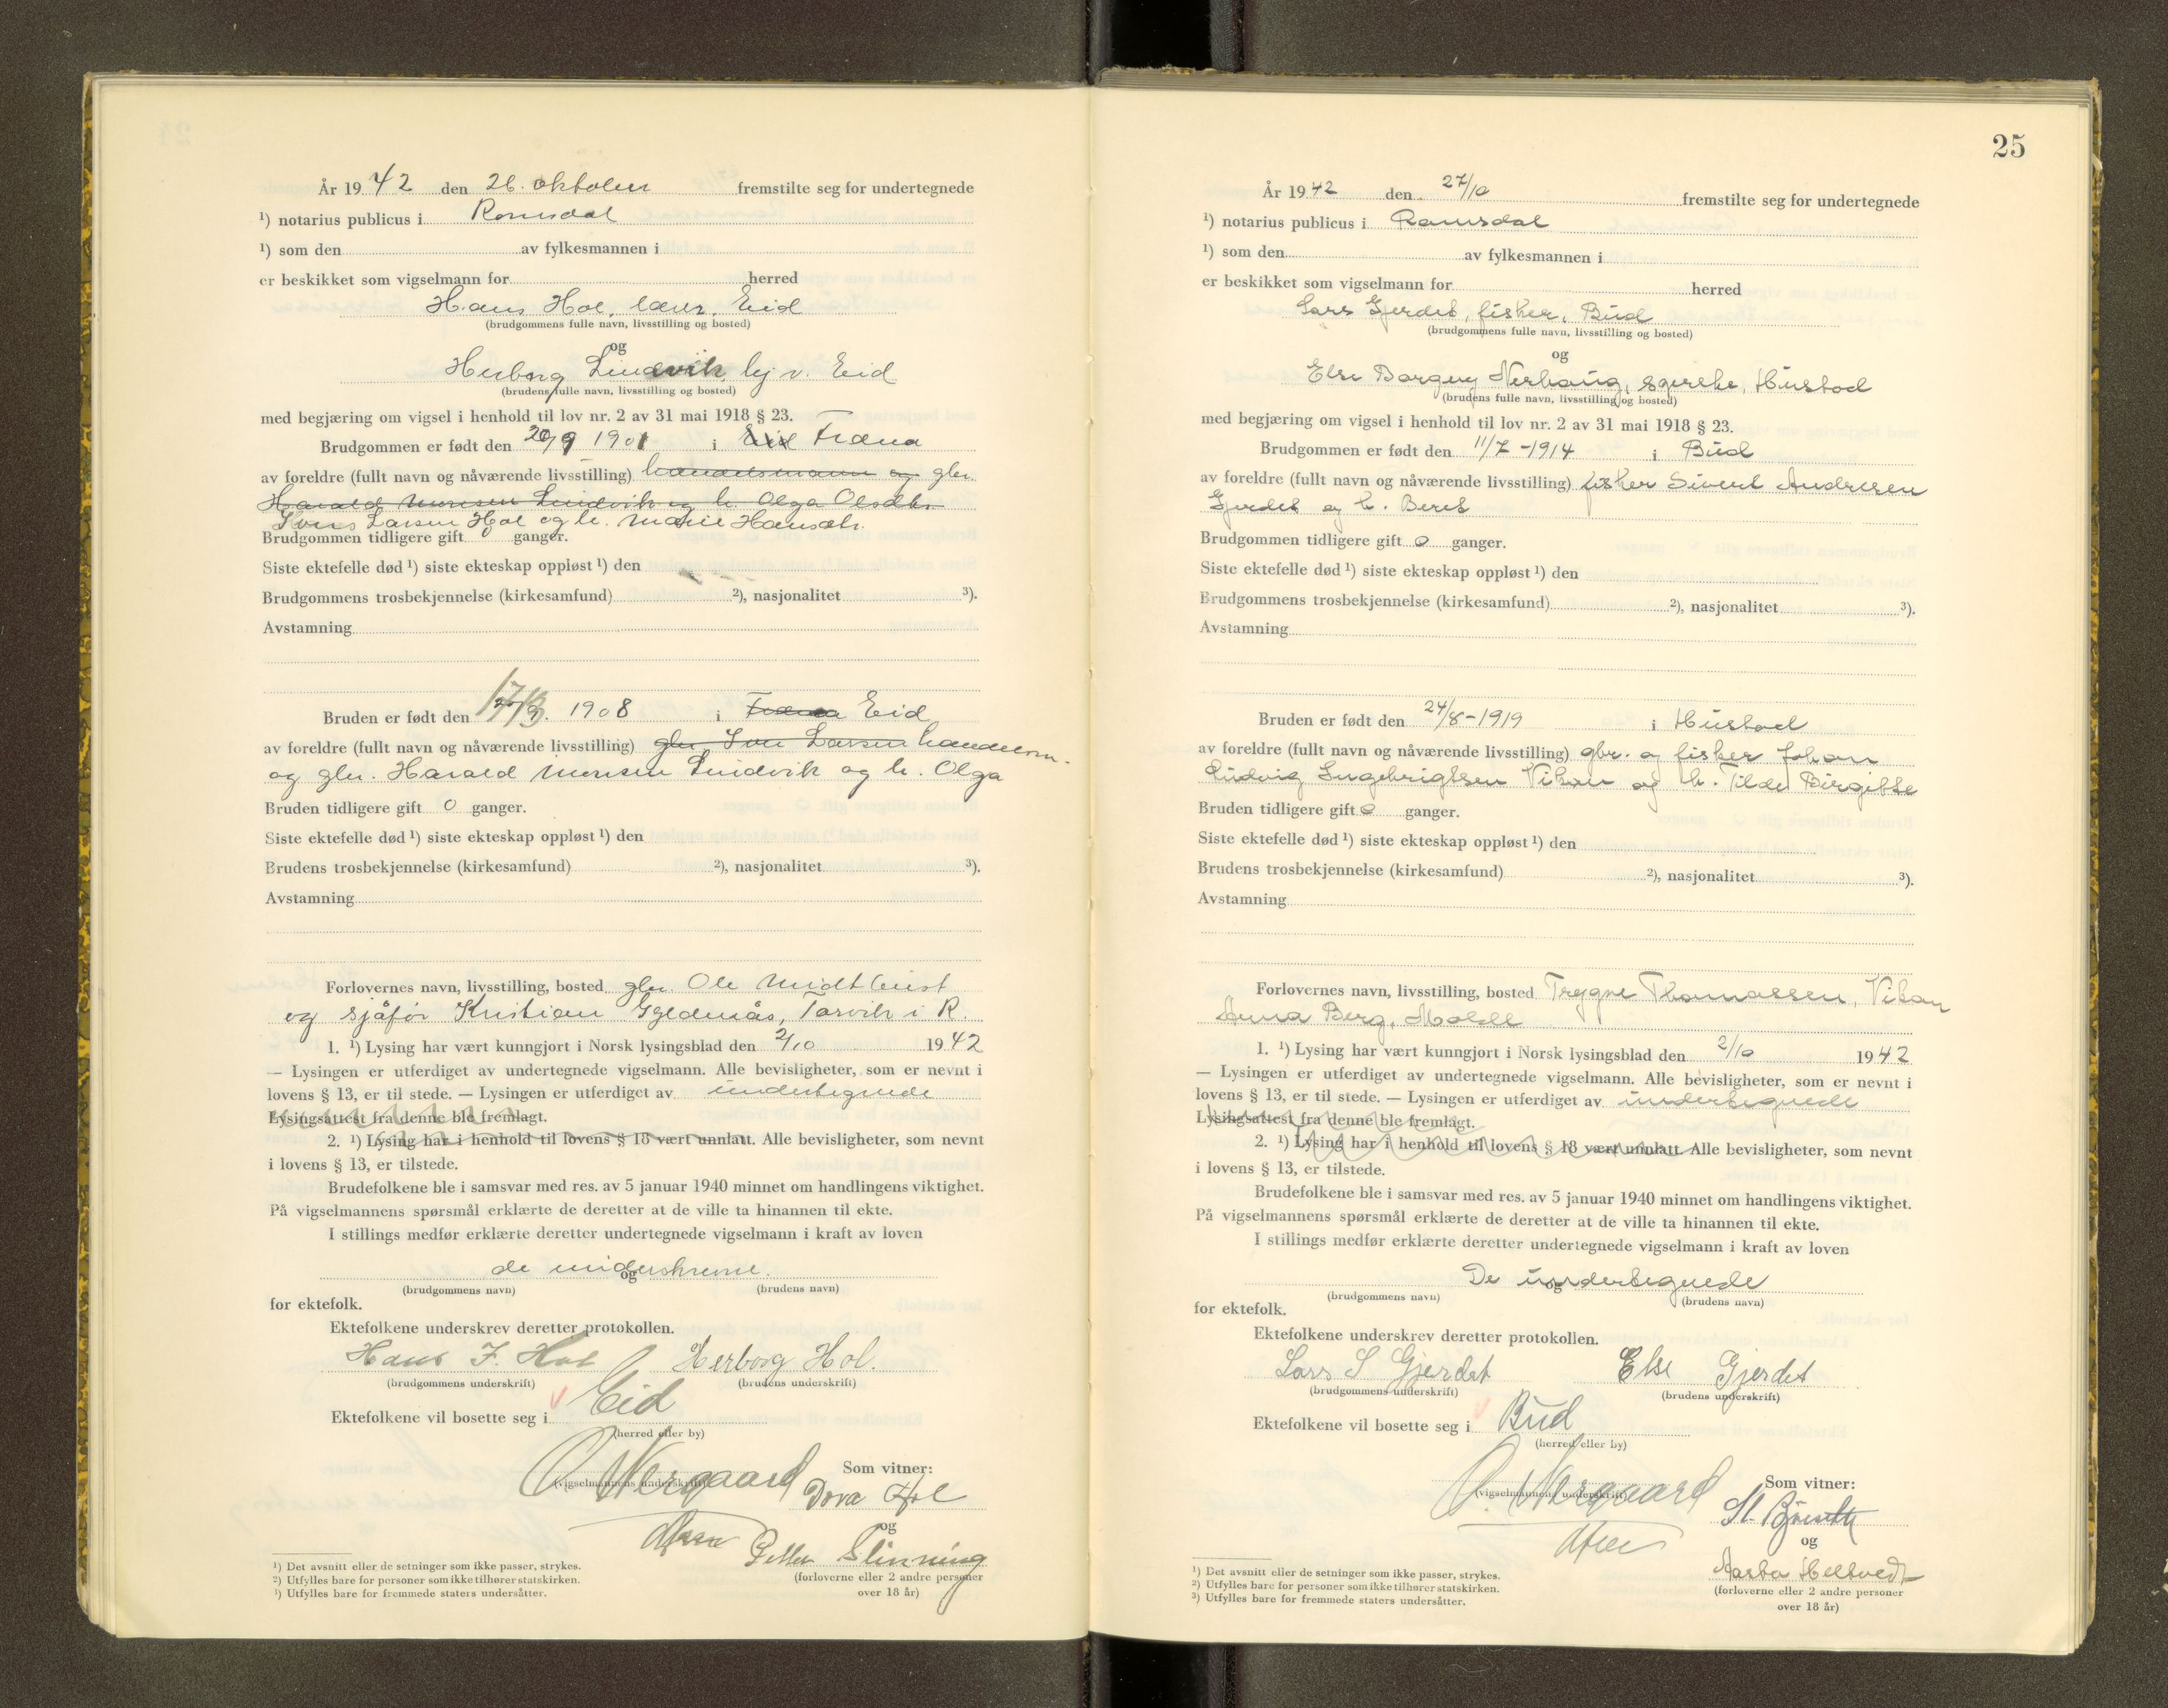 År 19 42 den 26. oktober fremstilte seg for undertegnede
¹) notarius publicus i Romsdal
¹) som den av fylkesmannen i
er beskikket som vigselmann for herred
Hans Hol, lærer, Eid
(brudgommens fulle navn, livsstilling og bosted)
og
Herborg Lindvik, hj v. Eid
(brudens fulle navn, livsstilling og bosted)
med begjæring om vigsel i henhold til lov nr. 2 av 31 mai 1918 § 23.
Brudgommen er født den 20/9 1901 i Eid Fræna
av foreldre (fullt navn og nåværende livsstilling) handelsmann og gbr.
Harald Monsen Lindvik og h. Olga Olsdtr
Ivers Larsen Hol og h. Marie Hansdtr.
Brudgommen tidligere gift 0 ganger.
Siste ektefelle død ¹) siste ekteskap oppløst ¹) den
Brudgommens trosbekjennelse (kirkesamfund) ²), nasjonalitet ³).
Avstamning
Bruden er født den 1908 i Fræna Eid
av foreldre (fullt navn og nåværende livsstilling) gbr. Iver Larsen handelsm.
og gbr. Harald Monsen Lindvik og h. Olga
Bruden tidligere gift 0 ganger.
Siste ektefelle død ¹) siste ekteskap oppløst ¹) den
Brudens trosbekjennelse (kirkesamfund) ²), nasjonalitet ³).
Avstamning
Forlovernes navn, livsstilling, bosted gbr Ole
og sjåfør Kristian Gjeldnås, Torvik i R.
1. ¹) Lysing har vært kunngjort i Norsk lysingsblad den 2/10 19 42
— Lysingen er utferdiget av undertegnede vigselmann. Alle bevisligheter, som er nevnt i
lovens § 13, er til stede. — Lysingen er utferdiget av undertegnede
Lysingsattest fra denne ble fremlagt.
2. ¹) Lysing har i henhold til lovens § 18 vært unnlatt. Alle bevisligheter, som nevnt
i lovens § 13, er tilstede.
Brudefolkene ble i samsvar med res. av 5 januar 1940 minnet om handlingens viktighet.
På vigselmannens spørsmål erklærte de deretter at de ville ta hinannen til ekte.
I stillings medfør erklærte deretter undertegnede vigselmann i kraft av loven
de underskrevne.
og
(brudgommens navn) (brudens navn)
for ektefolk.
Ektefolkene underskrev deretter protokollen.
Hans I. Hol Herborg Hol.
(brudgommens underskrift) (brudens underskrift)
Ektefolkene vil bosette seg i Eid
(herred eller by)
O. Nergaard
(vigselmannens underskrift)
Som vitner:
Dora Hol
og
Petter Slinning
(forloverne eller 2 andre personer
over 18 år)
¹) Det avsnitt eller de setninger som ikke passer, strykes.
²) Utfylles bare for personer som ikke tilhører statskirken.
³) Utfylles bare for fremmede staters undersåtter.
25
År 19 42 den 27/10 fremstilte seg for undertegnede
¹) notarius publicus i Romsdal
¹) som den av fylkesmannen i
er beskikket som vigselmann for herred
Lars Gjerdet, fisker, Bud
(brudgommens fulle navn, livsstilling og bosted)
og
Else Borgny Nerhaug, Hustad
(brudens fulle navn, livsstilling og bosted)
med begjæring om vigsel i henhold til lov nr. 2 av 31 mai 1918 § 23.
Brudgommen er født den 11/7 -1914 i Bud
av foreldre (fullt navn og nåværende livsstilling) fisker Sivert Andresen
Gjerdet og h. Beret
Brudgommen tidligere gift 0 ganger.
Siste ektefelle død ¹) siste ekteskap oppløst ¹) den
Brudgommens trosbekjennelse (kirkesamfund) ²), nasjonalitet ³).
Avstamning
Bruden er født den 24/8-1919 i Hustad
av foreldre (fullt navn og nåværende livsstilling) gbr. og fisker Johan
Ludvig Ingebrigtsen Vikan og h. Tilde Birgitte
Bruden tidligere gift 0 ganger.
Siste ektefelle død ¹) siste ekteskap oppløst ¹) den
Brudens trosbekjennelse (kirkesamfund) ²), nasjonalitet ³).
Avstamning
Forlovernes navn, livsstilling, bosted Trygve Thomassen, Vikan
Anna Berg, Molde
1. ¹) Lysing har vært kunngjort i Norsk lysingsblad den 2/10 19 42
— Lysingen er utferdiget av undertegnede vigselmann. Alle bevisligheter, som er nevnt i
lovens § 13, er til stede. — Lysingen er utferdiget av undertegnede
Lysingsattest fra denne ble fremlagt.
2. ¹) Lysing har i henhold til lovens § 18 vært unnlatt. Alle bevisligheter, som nevnt
i lovens § 13, er tilstede.
Brudefolkene ble i samsvar med res. av 5 januar 1940 minnet om handlingens viktighet.
På vigselmannens spørsmål erklærte de deretter at de ville ta hinannen til ekte.
I stillings medfør erklærte deretter undertegnede vigselmann i kraft av loven
De undertegnede
og
(brudgommens navn) (brudens navn)
for ektefolk.
Ektefolkene underskrev deretter protokollen.
Lars S Gjerdet Else Gjerdet
(brudgommens underskrift) (brudens underskrift)
Ektefolkene vil bosette seg i Bud
(herred eller by)
O. Nergaard
(vigselmannens underskrift)
Som vitner:
og
Aasta Heltvedt
(forloverne eller 2 andre personer
over 18 år)
¹) Det avsnitt eller de setninger som ikke passer, strykes.
²) Utfylles bare for personer som ikke tilhører statskirken.
³) Utfylles bare for fremmede staters undersåtter.